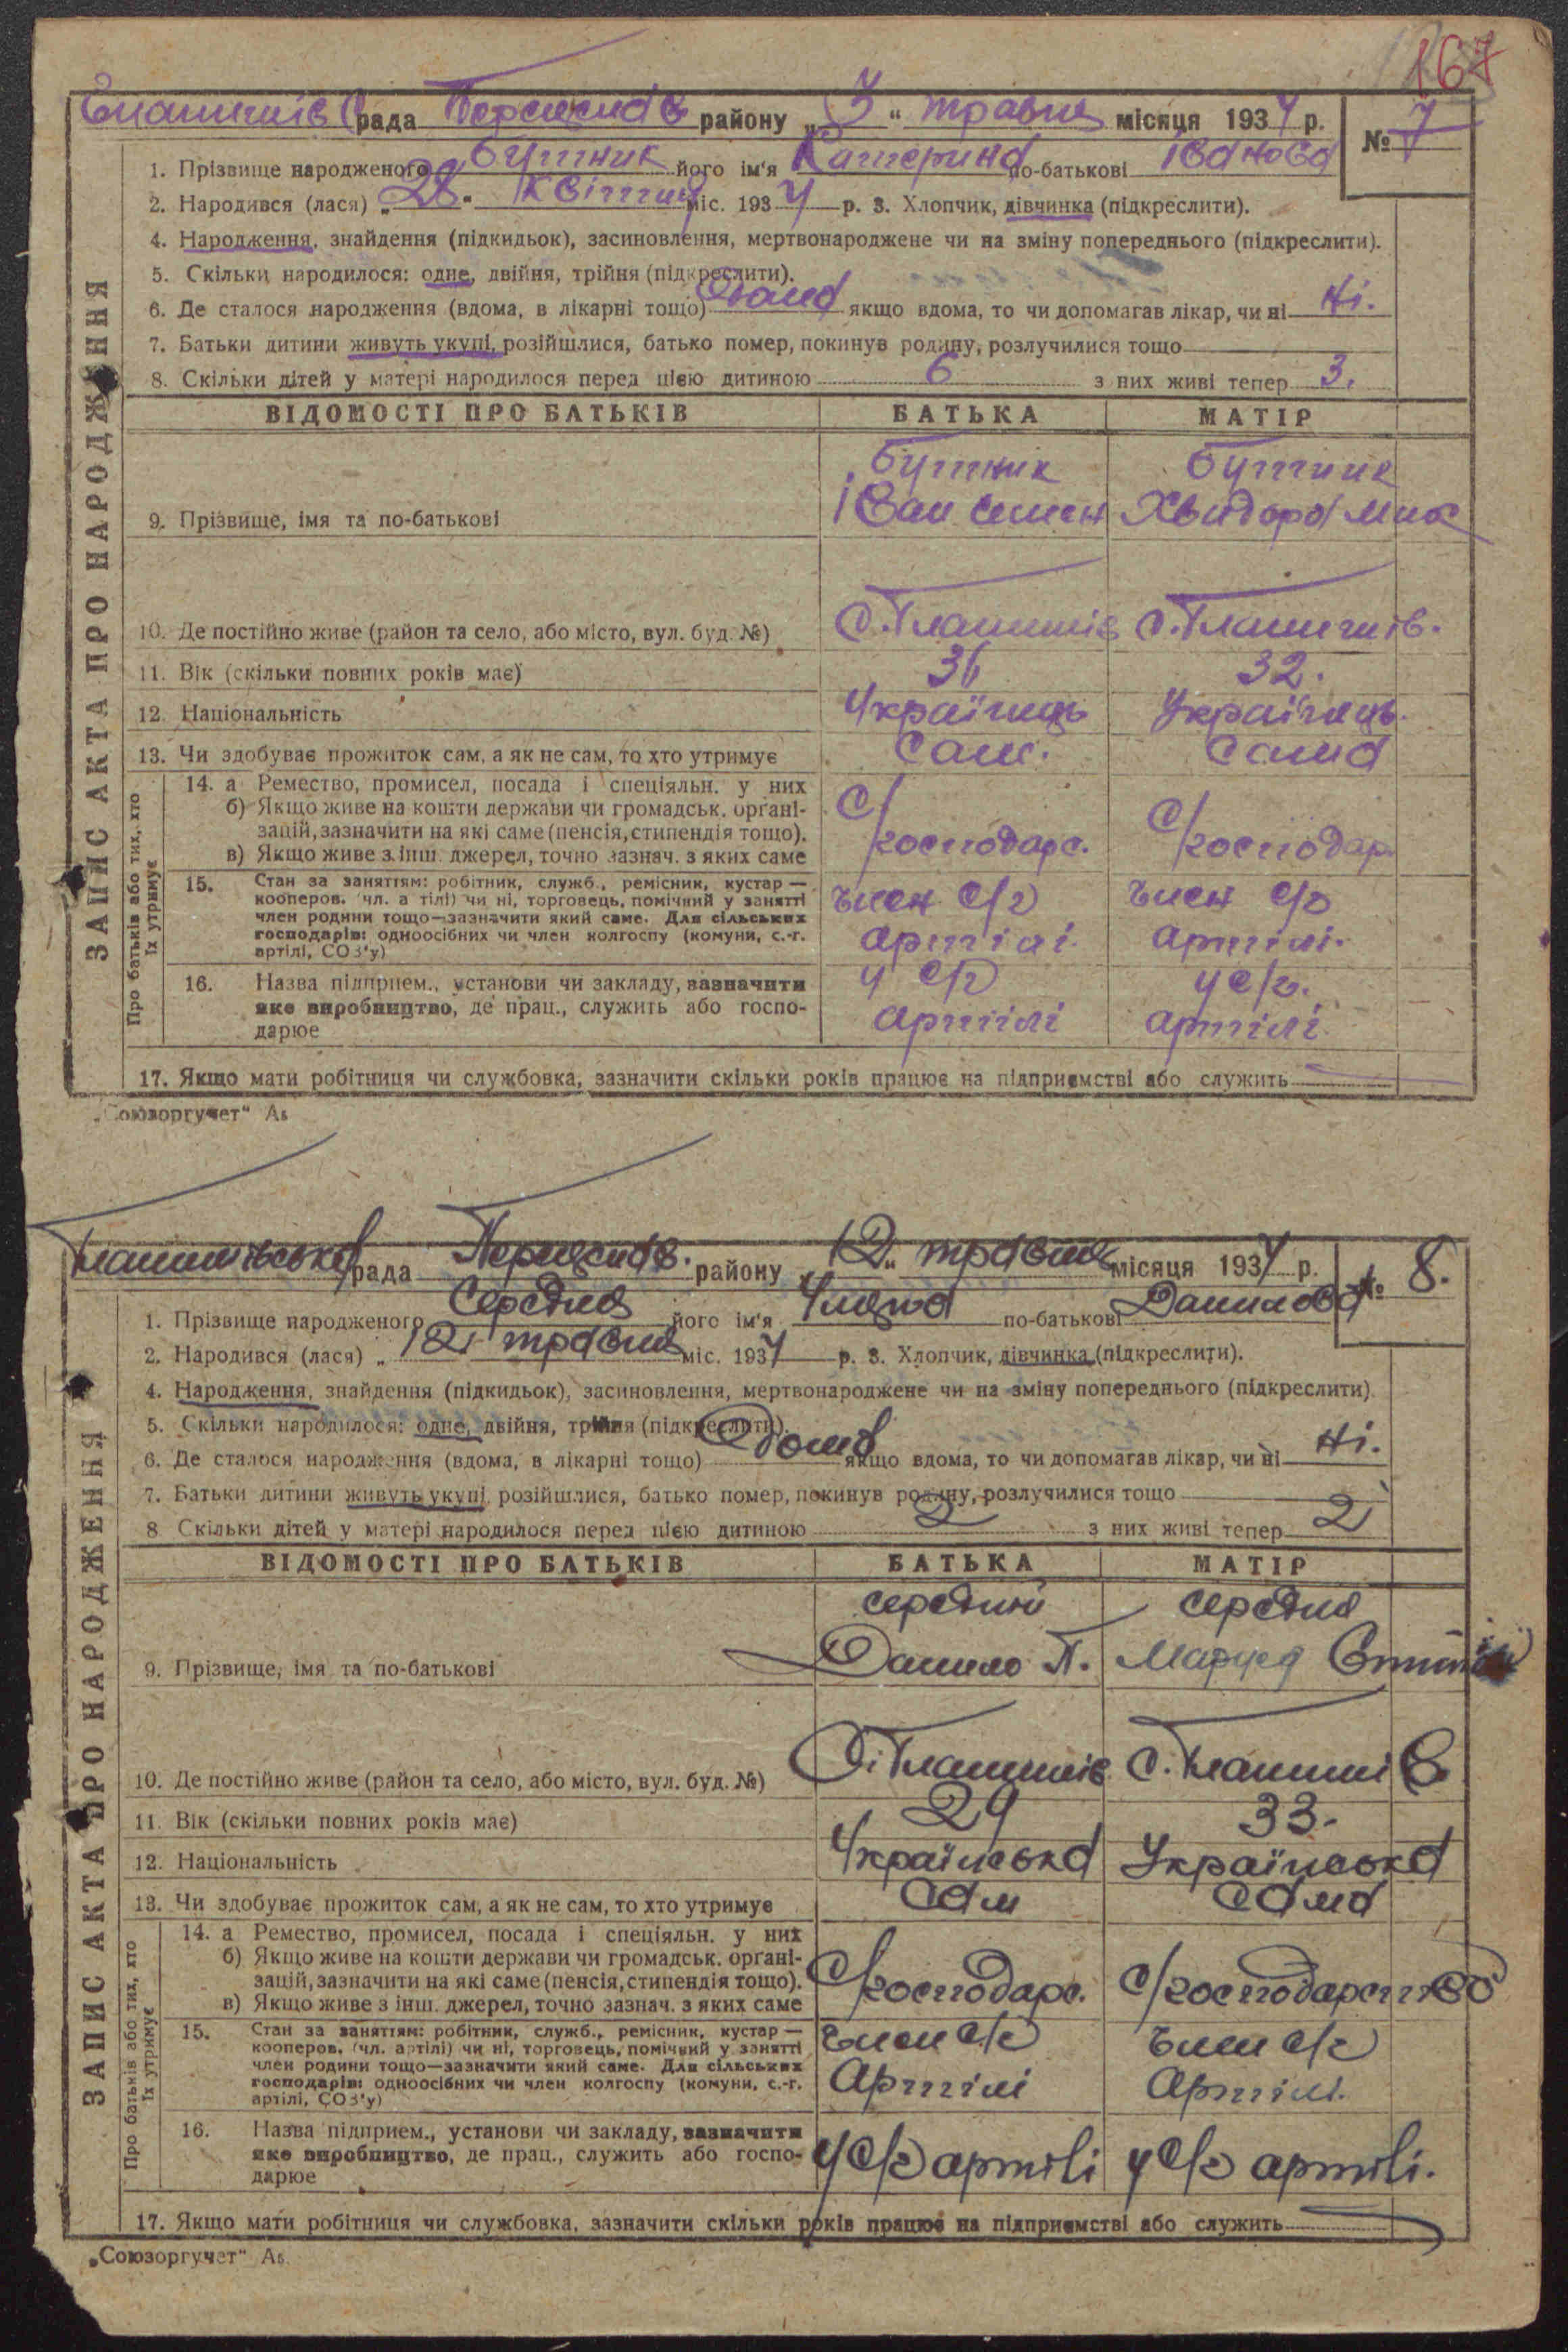 167
рада району „3“ травня місяця 1934 р. № 7
1. Прізвище народженого Бутник його ім'я Катерина по-батькові Іванова
2. Народився (лася) „28“ Квітня міс. 1934 р. 3. Хлопчик, дівчинка (підкреслити).
4. Народження, знайдення (підкидьок), засиновлення, мертвонароджене чи на зміну попереднього (підкреслити).
5. Скільки народилося: одне, двійня, трійня (підкреслити).
6. Де сталося народження (вдома, в лікарні тощо) якщо вдома, то чи допомагав лікар, чи ні Ні.
7. Батьки дитини живуть укупі, розійшлися, батько помер, покинув родину, розлучилися тощо
8. Скільки дітей у матері народилося перед цією дитиною 6 з них живі тепер 3.
ВІДОМОСТІ ПРО БАТЬКІВ БАТЬКА МАТІР
Бутник Бутник
9. Прізвище, імя та по-батькові Іван Семен Хвидора Мик
10. Де постійно живе (район та село, або місто, вул. буд. №)
11. Вік (скільки повних років має) 36 32.
12. Національність Українець Українець.
13. Чи здобуває прожиток сам, а як не сам, то хто утримує Сам. Сама
14. а Ремество, промисел, посада і спеціяльн. у них
б) Якщо живе на кошти держави чи громадськ. органі- С/ С/
зацій, зазначити на які саме (пенсія, стипендія тощо).
в) Якщо живе з інш. джерел, точно зазнач. з яких саме господарс. господар
15. Стан за заняттям: робітник, служб., ремісник, кустар — член с/г член с/г
кооперов. (чл. артілі) чи ні, торговець, помічний у занятті
член родини тощо—зазначити який саме. Для сільських
господарів: одноосібних чи член колгоспу (комуни, с.-г. артілі артілі.
артілі, СОЗ'у)
16. Назва підприєм., установи чи закладу, зазначити у с/г у с/г.
яке виробництво, де прац., служить або госпо- артілі артілі
дарює
17. Якщо мати робітниця чи службовка, зазначити скільки років працює на підприємстві або служить
ЗАПИС АКТА ПРО НАРОДЖЕННЯ
Про батьків або тих, хто
їх утримує
„Союзоргучет“
рада району „12“ травня місяця 1934 р. № 8.
1. Прізвище народженого Середня його ім'я по-батькові Данилова
2. Народився (лася) „12 травня міс. 1934 р. 3. Хлопчик, дівчинка (підкреслити).
4. Народження, знайдення (підкидьок), засиновлення, мертвонароджене чи на зміну попереднього (підкреслити)
5. Скільки народилося: одне, двійня, трійня (підкреслити).
6. Де сталося народження (вдома, в лікарні тощо) Вдома якщо вдома, то чи допомагав лікар, чи ні Ні.
7. Батьки дитини живуть укупі, розійшлися, батько помер, покинув родину, розлучилися тощо
8 Скільки дітей у матері народилося перед цією дитиною 2 з них живі тепер 2
ВІДОМОСТІ ПРО БАТЬКІВ БАТЬКА МАТІР
середній середня
9. Прізвище, імя та по-батькові Данило П.
10. Де постійно живе (район та село, або місто, вул. буд. №)
11. Вік (скільки повних років має) 29 33.
12. Національність Українська Українська
13. Чи здобуває прожиток сам, а як не сам, то хто утримує Сам Сама
14. а Ремество, промисел, посада і спеціяльн. у них
б) Якщо живе на кошти держави чи громадськ. органі-
зацій, зазначити на які саме (пенсія, стипендія тощо). С/господарс. С/господарство
в) Якщо живе з інш. джерел, точно зазнач. з яких саме
15. Стан за заняттям: робітник, служб., ремісник, кустар — член с/г член с/г
кооперов. (чл. артілі) чи ні, торговець, помічний у занятті
член родини тощо—зазначити який саме. Для сільських
господарів: одноосібних чи член колгоспу (комуни, с.-г. Артілі Артілі.
артілі, СОЗ'у)
16. Назва підприєм., установи чи закладу, зазначити
яке виробництво, де прац., служить або госпо- у с/г артілі у с/г артілі.
дарює
17. Якщо мати робітниця чи службовка, зазначити скільки років працює на підприємстві або служить
ЗАПИС АКТА ПРО НАРОДЖЕННЯ
Про батьків або тих, хто
їх утримує
„Союзоргучет“